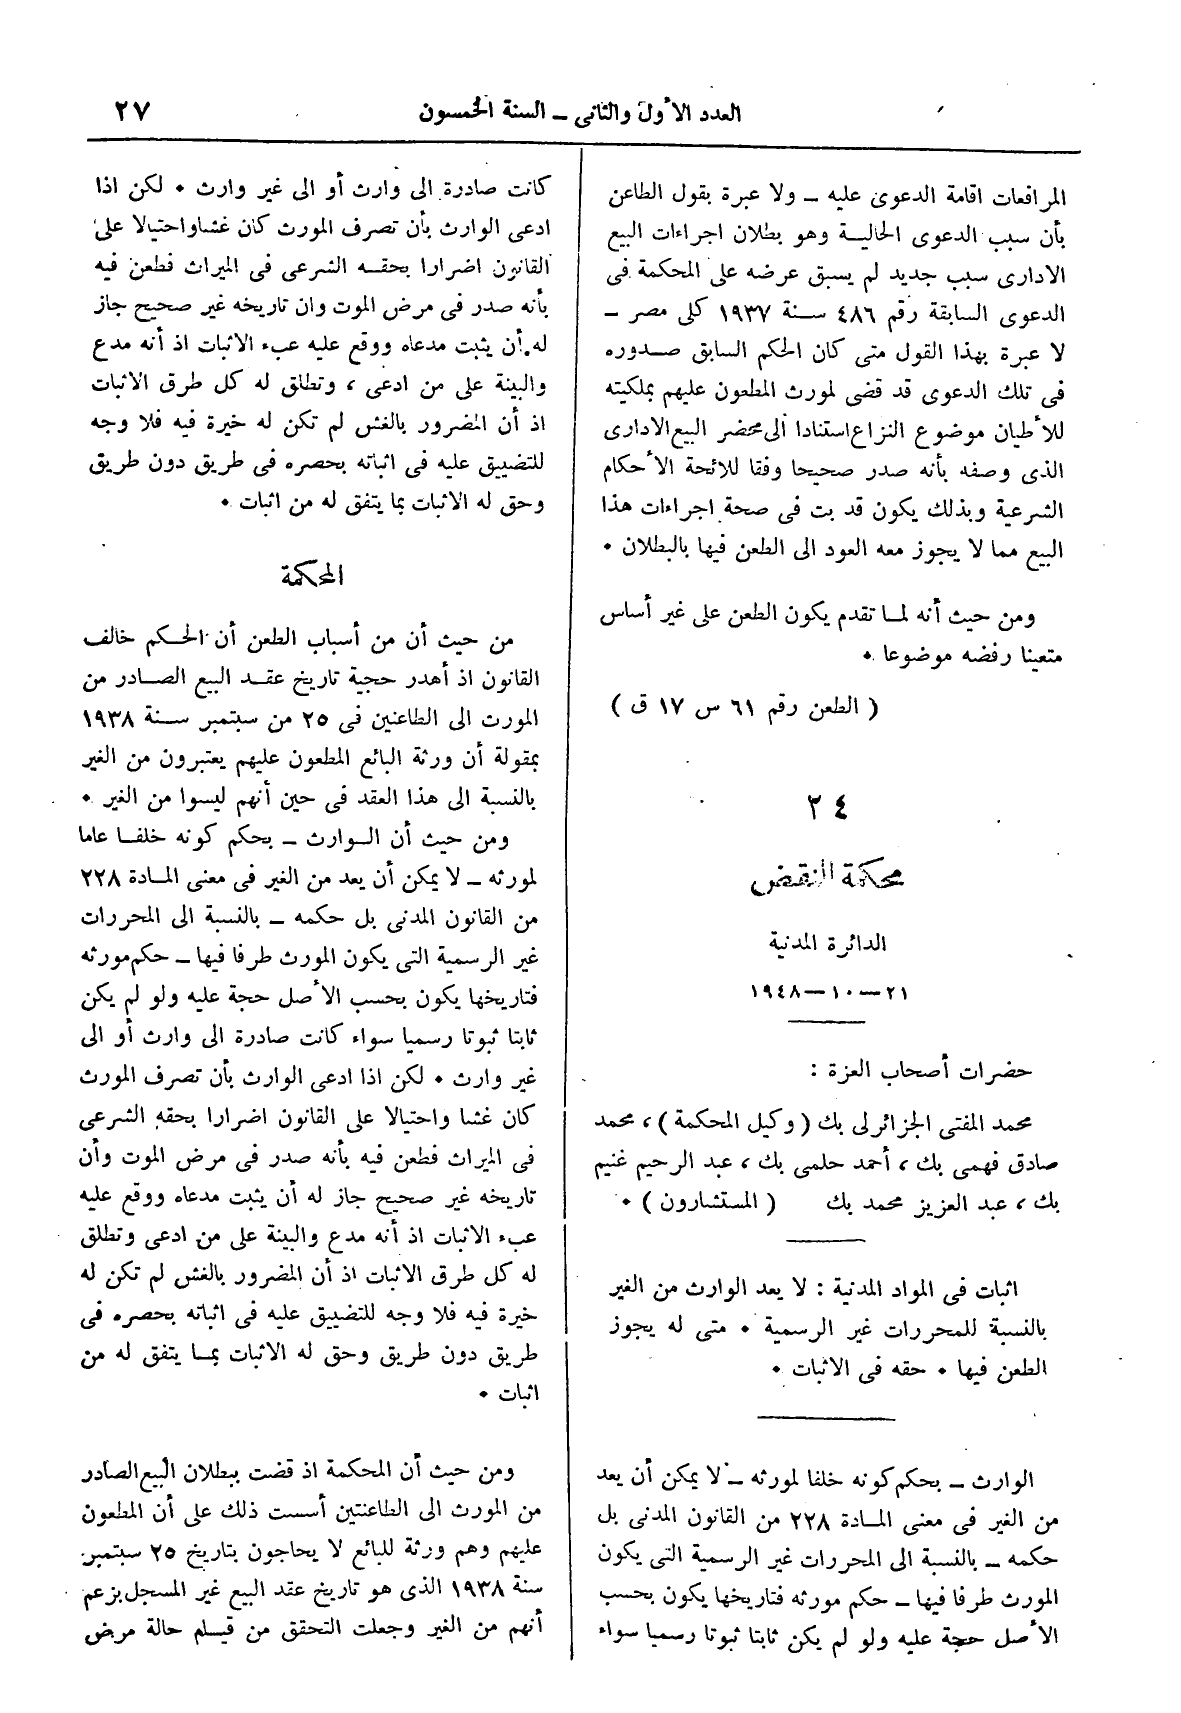 العدد الأول والثانى – السنة الخمسون
٢٧
المرافعات اقامة الدعوى عليه – ولا عبرة بقول الطاعن
بأن سبب الدعوى الحاليـة وهو بطلان اجراءات البيع
الادارى سبب جديد لم يسبق عرضه على المحكمة فى
الدعوى السابقة رقم ٤٨٦ سـنة ١٩٣٧ كلى مصر –
لا عبرة بهذا القول متى كان الحكم السابق صـدوره
فى تلك الدعوى قد قضى لمورث المطعون عليهم بملكيته
للأطيان موضوع النزاع استنادا الى محضر البيع الادارى
الذى وصفه بأنه صدر صحيحا وفقا للائحة الأحكام
الشرعية وبذلك يكون قد بت فى صحة اجراءات هذا
البيع مما لا يجوز معه العود الى الطعن فيها بالبطلان ٠
ومن حيث أنه لمـا تقدم يكون الطعن على غير أساس
متعينا رفضه موضوعا ٠
( الطعن رقم ٦١ س ١٧ ق )
٢٤
محكمة النقض
الدائرة المدنية
٢١–١٠–١٩٤٨
حضرات أصحاب العزة :
محمد المفتى الجزائرلى بك ( وكيل المحكمة ) ، محمد
صادق فهمى بك ، أحمد حلمى بك ، عبد الرحيم غنيم
بك ، عبد العزيز محمد بك ( المستشارون ) ٠
اثبات فى المواد المدنية : لا يعد الوارث من الغير
بالنسبة للمحررات غير الرسمية ٠ متى له يجوز
الطعن فيها ٠ حقه فى الاثبات ٠
الوارث – بحكم كونه خلفا لمورثه – لا يمكن أن يعد
من الغير فى معنى المـادة ٢٢٨ من القانون المدنى بل
حكمه – بالنسبة الى المحررات غير الرسمية التى يكون
المورث طرفا فيها – حكم مورثه فتاريخها يكون بحسب
الأصل حجة عليه ولو لم يكن ثابتا ثبوتا رسميا سواء
كانت صادرة الى وارث أو الى غير وارث ٠ لكن اذا
ادعى الوارث بأن تصرف المورث كان غشا واحتيالا على
القانون اضرارا بحقـه الشرعى فى الميراث فطعن فيه
بأنه صدر فى مرض الموت وان تاريخه غير صحيح جاز
له أن يثبت مدعاه ووقع عليه عبء الاثبات اذ أنه مدع
والبينة على من ادعى ، وتطلق له كل طرق الاثبات
اذ أن المضرور بالغش لم تكن له خيرة فيه فلا وجه
للتضييق عليه فى اثباته بحصره فى طريق دون طريق
وحق له الاثبات بما يتفق له من اثبات ٠
المحكمة
من حيث أن من أسباب الطعن أن الحـكم خالف
القانون اذ أهدر حجية تاريخ عقـد البيع الصـادر من
المورث الى الطاعنين فى ٢٥ من سبتمبر سـنة ١٩٣٨
بمقولة أن ورثة البائع المطعون عليهم يعتبرون من الغير
بالنسبة الى هذا العقد فى حين أنهم ليسوا من الغير ٠
ومن حيث أن الـوارث – بحكم كونه خلفـا عاما
لمورثه – لا يمكن أن يعد من الغير فى معنى المـادة ٢٢٨
من القانون المدنى بل حكمه – بالنسبة الى المحررات
غير الرسمية التى يكون المورث طرفا فيها – حكم مورثه
فتاريخها يكون بحسب الأصل حجة عليه ولو لم يكن
ثابتا ثبوتا رسميا سواء كانت صادرة الى وارث أو الى
غير وارث ٠ لكن اذا ادعى الوارث بأن تصرف المورث
كان غشا واحتيالا على القانون اضرارا بحقه الشرعى
فى الميراث فطعن فيه بأنه صدر فى مرض الموت وأن
تاريخه غير صحيح جاز له أن يثبت مدعاه ووقع عليه
عبء الاثبات اذ أنه مدع والبينة على من ادعى وتطلق
له كل طرق الاثبات اذ أن المضرور بالغش لم تكن له
خيرة فيه فلا وجه للتضييق عليه فى اثباته بحصره فى
طريق دون طريق وحق له الاثبات بمـا يتفق له من
اثبات ٠
ومن حيث أن المحكمة اذ قضت ببطلان البيع الصادر
من المورث الى الطاعنتين أسست ذلك على أن المطعون
عليهم وهم ورثة للبائع لا يحاجون بتاريخ ٢٥ سبتمبر
سنة ١٩٣٨ الذى هو تاريخ عقد البيع غير المسجل بزعم
أنهم من الغير وجعلت التحقق من قيـام حالة مرض